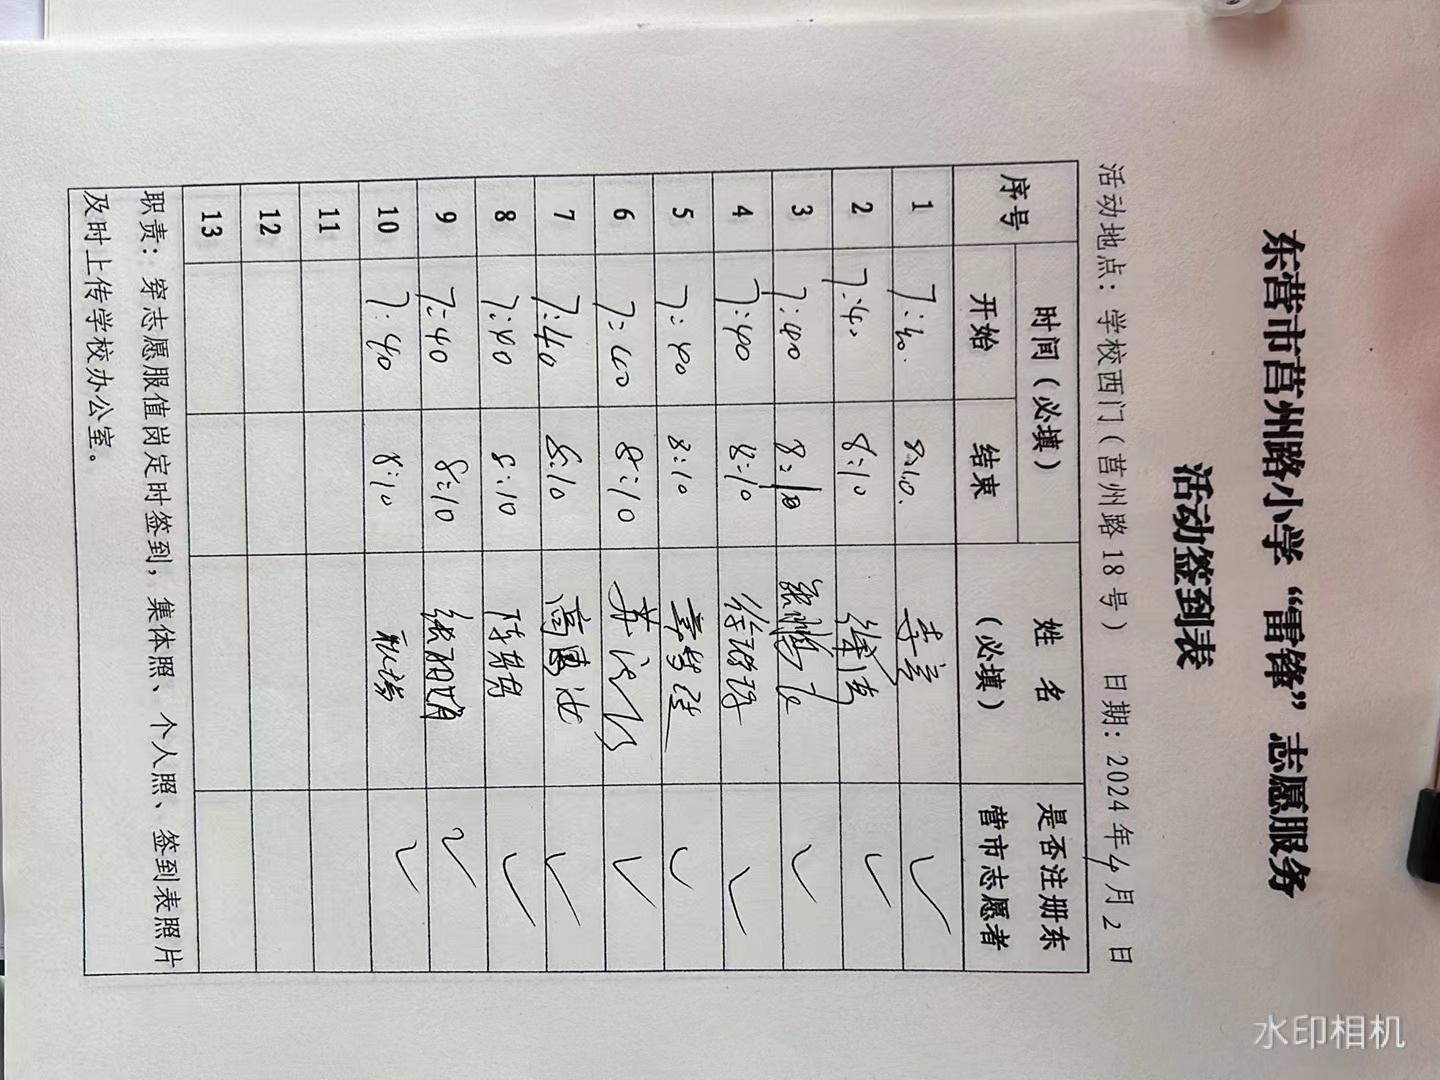 东营市莒州路小学“雷锋”志愿服务
活动签到表
活动地点：学校西门（莒州路18号） 日期：2024年4月2日
序号 时间（必填） 姓 名（必填） 是否注册东营市志愿者
开始 结束
1 7:40. 8:10. 李 ✓
2 7:40 8:10 徐 ✓
3 7:40 8:10 张 ✓
4 7:40 8:10 徐 ✓
5 7:40 8:10 ✓
6 7:40 8:10 ✓
7 7:40 8:10 高 ✓
8 7:40 8:10 陈 ✓
9 7:40 8:10 张 ✓
10 7:40 8:10 ✓
11
12
13
职责：穿志愿服值岗定时签到，集体照、个人照、签到表照片
及时上传学校办公室。
水印相机